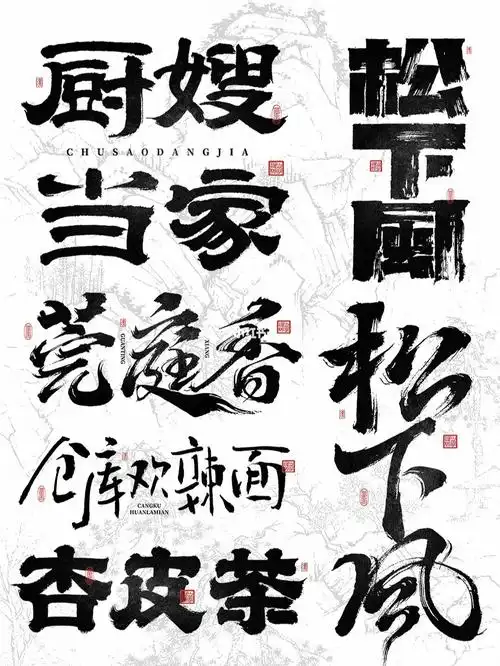 厨嫂
CHUSAODANGJIA
当家
莞庭香
GUANTING
XIANG
仓库欢辣面
CANGKU
HUANLAMIAN
杏皮茶
松下風
松下风